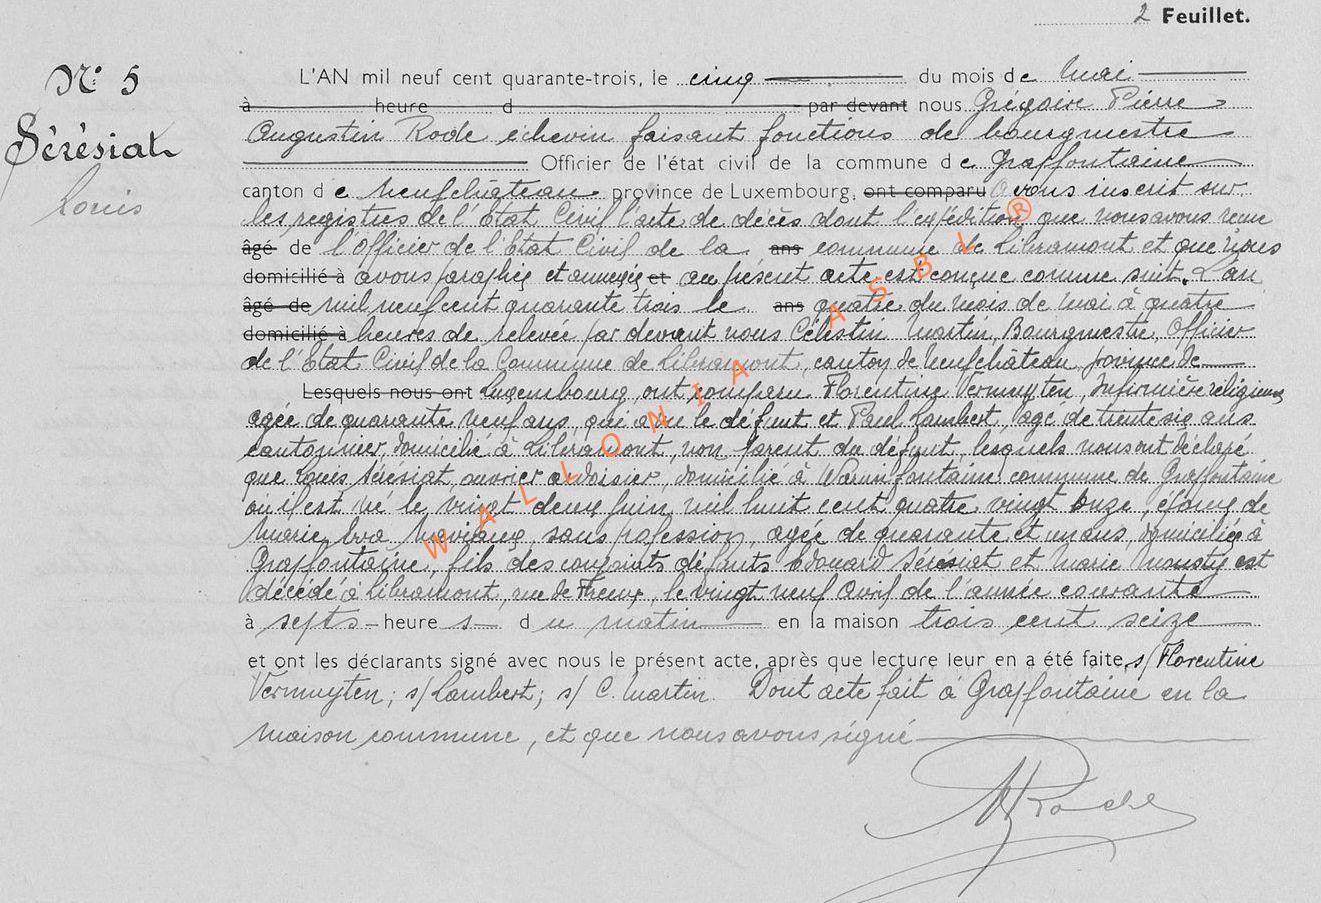 2 Feuillet.
N° 5
Sérésiat
Louis
L'AN mil neuf cent quarante-trois, le cinq du mois de Mai
à heure d par devant nous Grégoire Pierre
Augustin Rode échevin faisant fonctions de bourgmestre
Officier de l'état civil de la commune de Grapfontaine
canton de Neufchâteau province de Luxembourg, ont comparu avons inscrit sur
les registres de l'Etat Civil l'acte de décès dont l'expédition que nous avons reçue
âgé de l'Officier de l'Etat Civil de la ans commune de Libramont et que nous
domicilié à avons paraphée et annexée et au présent acte est conçue comme suit. L'an
âgé de mil neuf cent quarante trois le ans quatre du mois de Mai à quatre
domicilié à heures de relevée par devant nous Célestin Martin, Bourgmestre, Officier
de l'Etat Civil de la Commune de Libramont, canton de Neufchâteau, province de
Lesquels nous ont Luxembourg, ont comparu Florentine Vermuyten, Infirmière religieuse
agée de quarante neuf ans, qui a vu le défunt et Paul Lambert, agé de trente six ans
cantonnier, domicilié à Libramont, non parent du défunt, lesquels nous ont déclaré
que Louis Sérésiat, ouvrier ardoisier, domicilié à Warmifontaine commune de Grapfontaine
où il est né le vingt deux Juin mil huit cent quatre vingt onze, époux de
Marie, sans profession, agée de quarante et un ans, domiciliée à
Grapfontaine, fils des conjoints défunts Edouard Sérésiat et Marie Mousty est
décédé à Libramont, rue de Freux, le vingt neuf Avril de l'année courante
à septs heures du matin en la maison trois cent seize
et ont les déclarants signé avec nous le présent acte, après que lecture leur en a été faite, s/ Florentine
Vermuyten; s/ Lambert; s/ C. Martin. Dont acte fait à Grapfontaine en la
maison commune, et que nous avons signé
WALLONIA ASBL ®